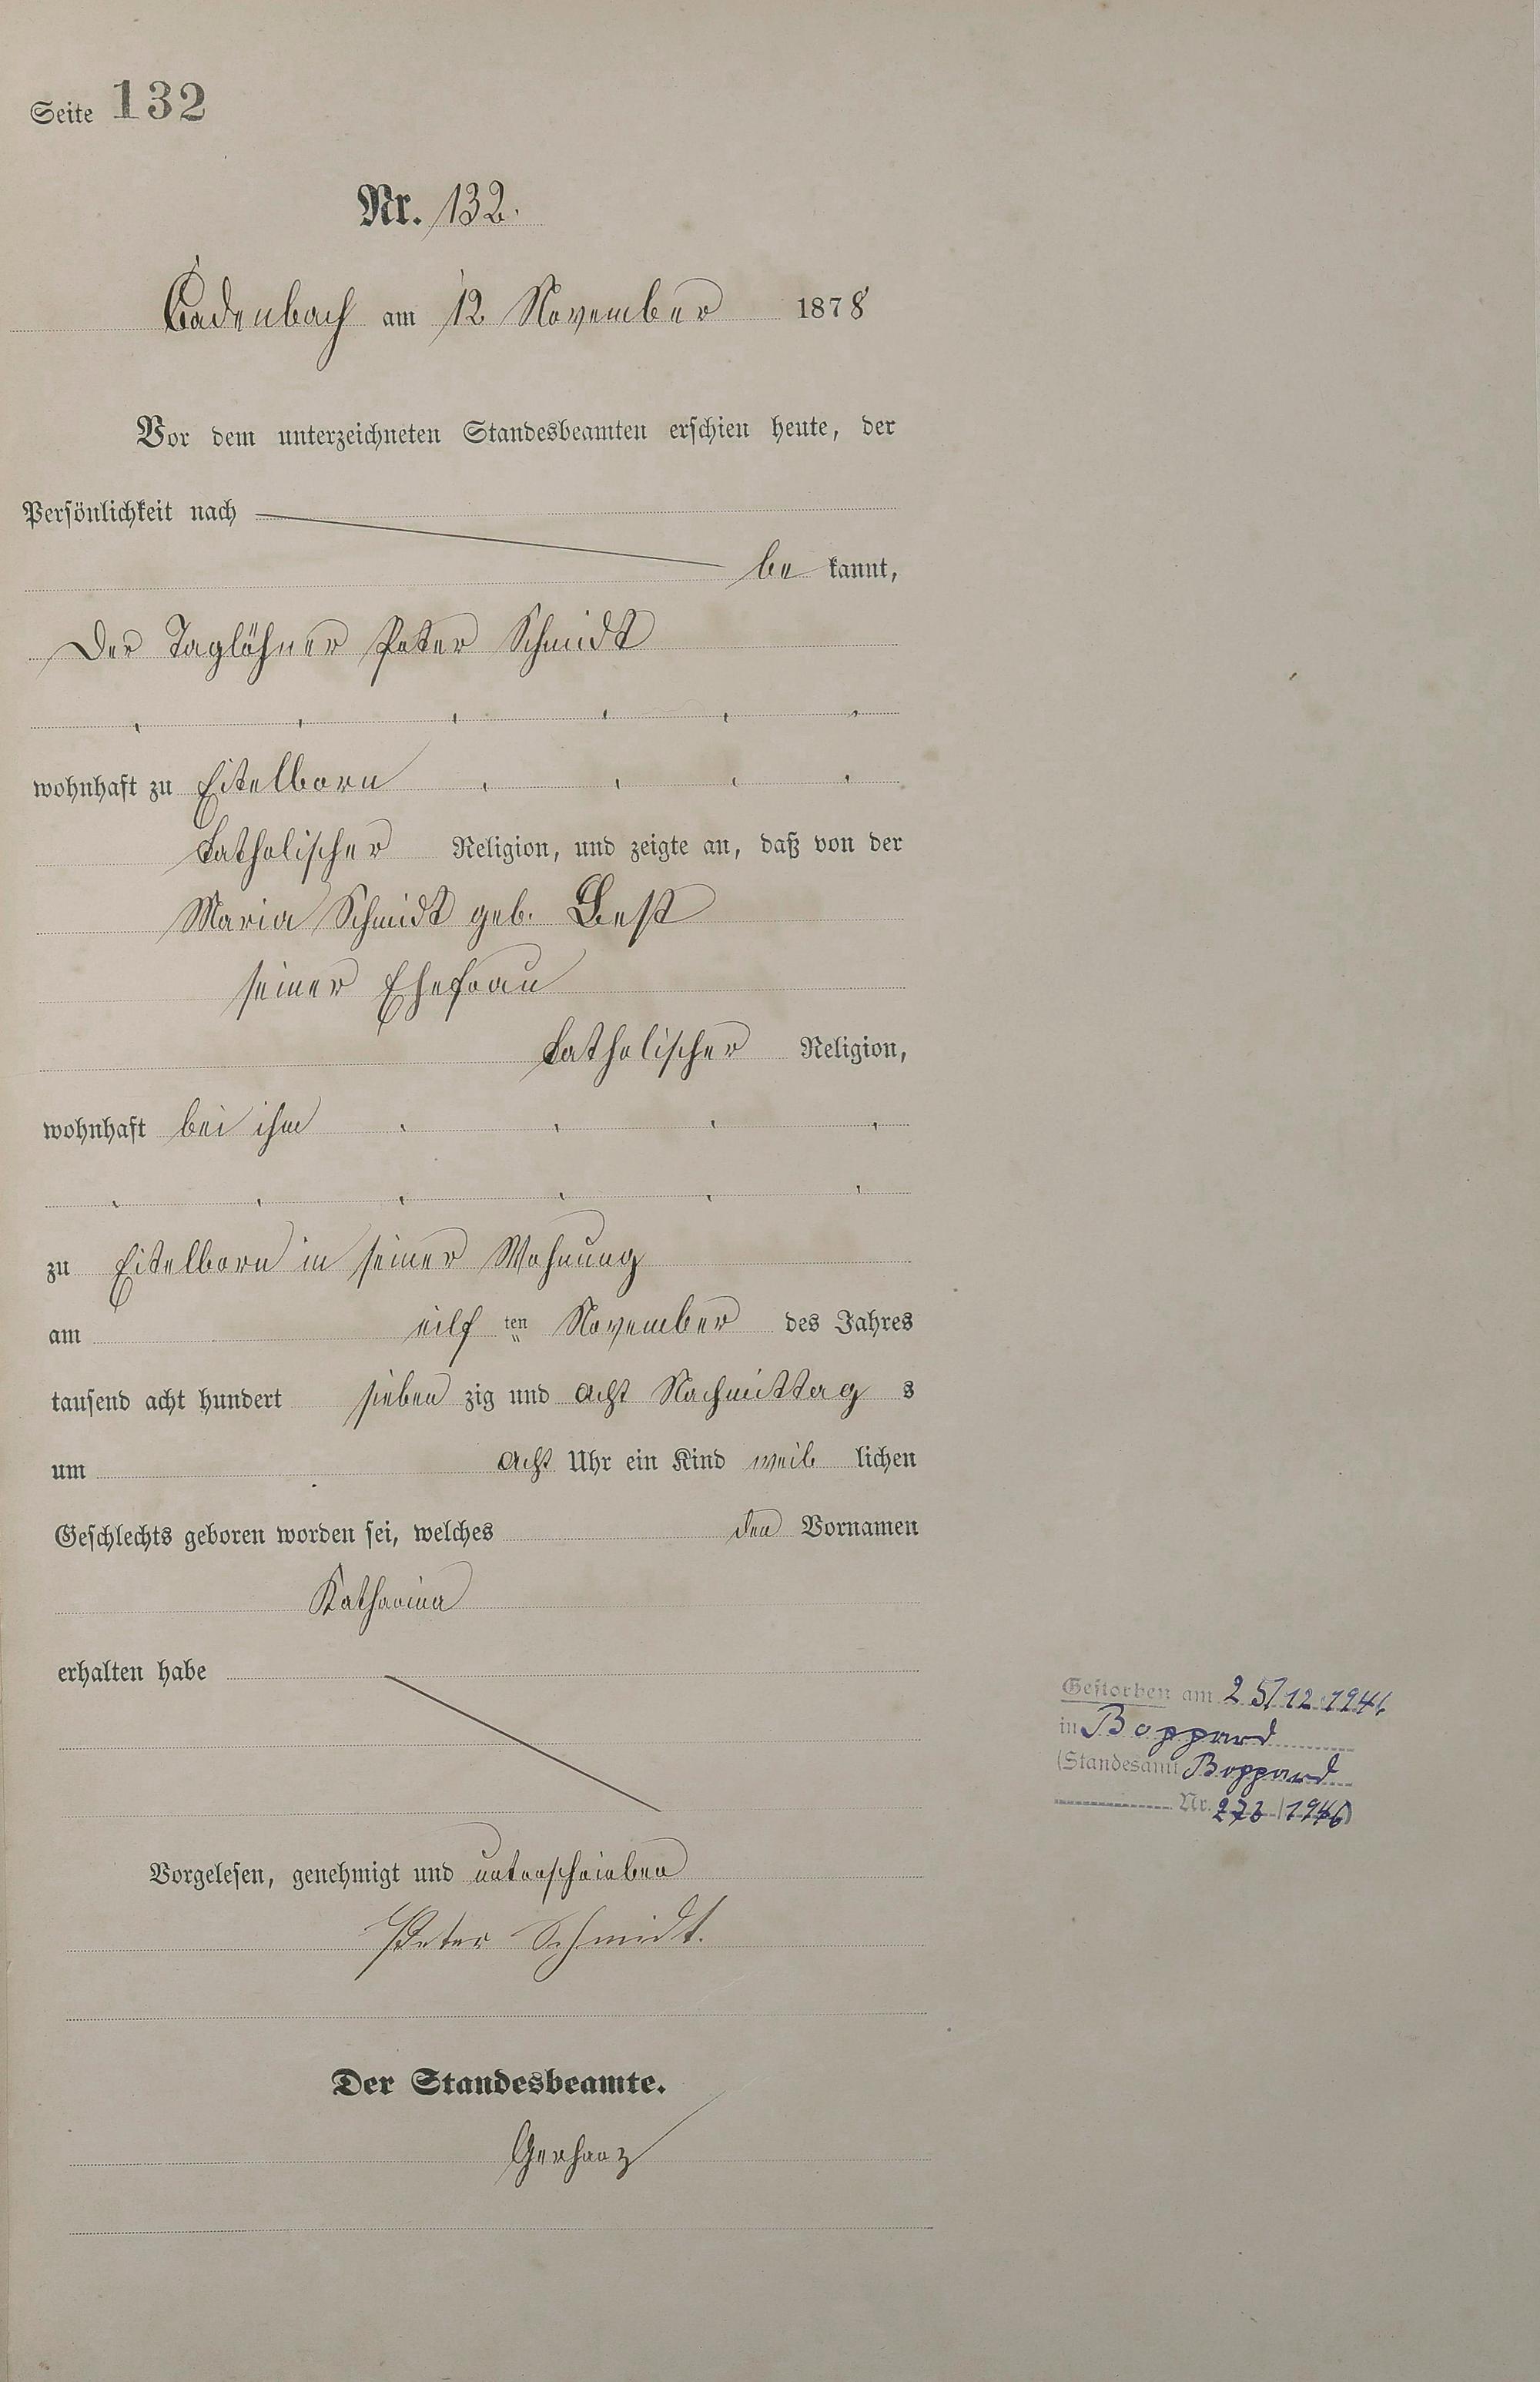 Seite 132
Nr. 132.
Cadenbach am 12 November 1878
Vor dem unterzeichneten Standesbeamten erschien heute, der
Persönlichkeit nach
be kannt,
Der Taglöhner Peter Schmidt
wohnhaft zu Eitelborn
katholischer Religion, und zeigte an, daß von der
Maria Schmidt geb. Best
seiner Ehefrau
katholischer Religion,
wohnhaft bei ihm
zu Eitelborn in seiner Wohnung
am eilf ten November des Jahres
tausend acht hundert sieben zig und acht Nachmittag s
um acht Uhr ein Kind weib lichen
Geschlechts geboren worden sei, welches den Vornamen
Katharina
erhalten habe
Gestorben am 25/12.1946
in Boppard
(Standesamt Boppard
Nr. /1946)
Vorgelesen, genehmigt und unterschrieben
Peter Schmidt.
Der Standesbeamte.
Gerharz